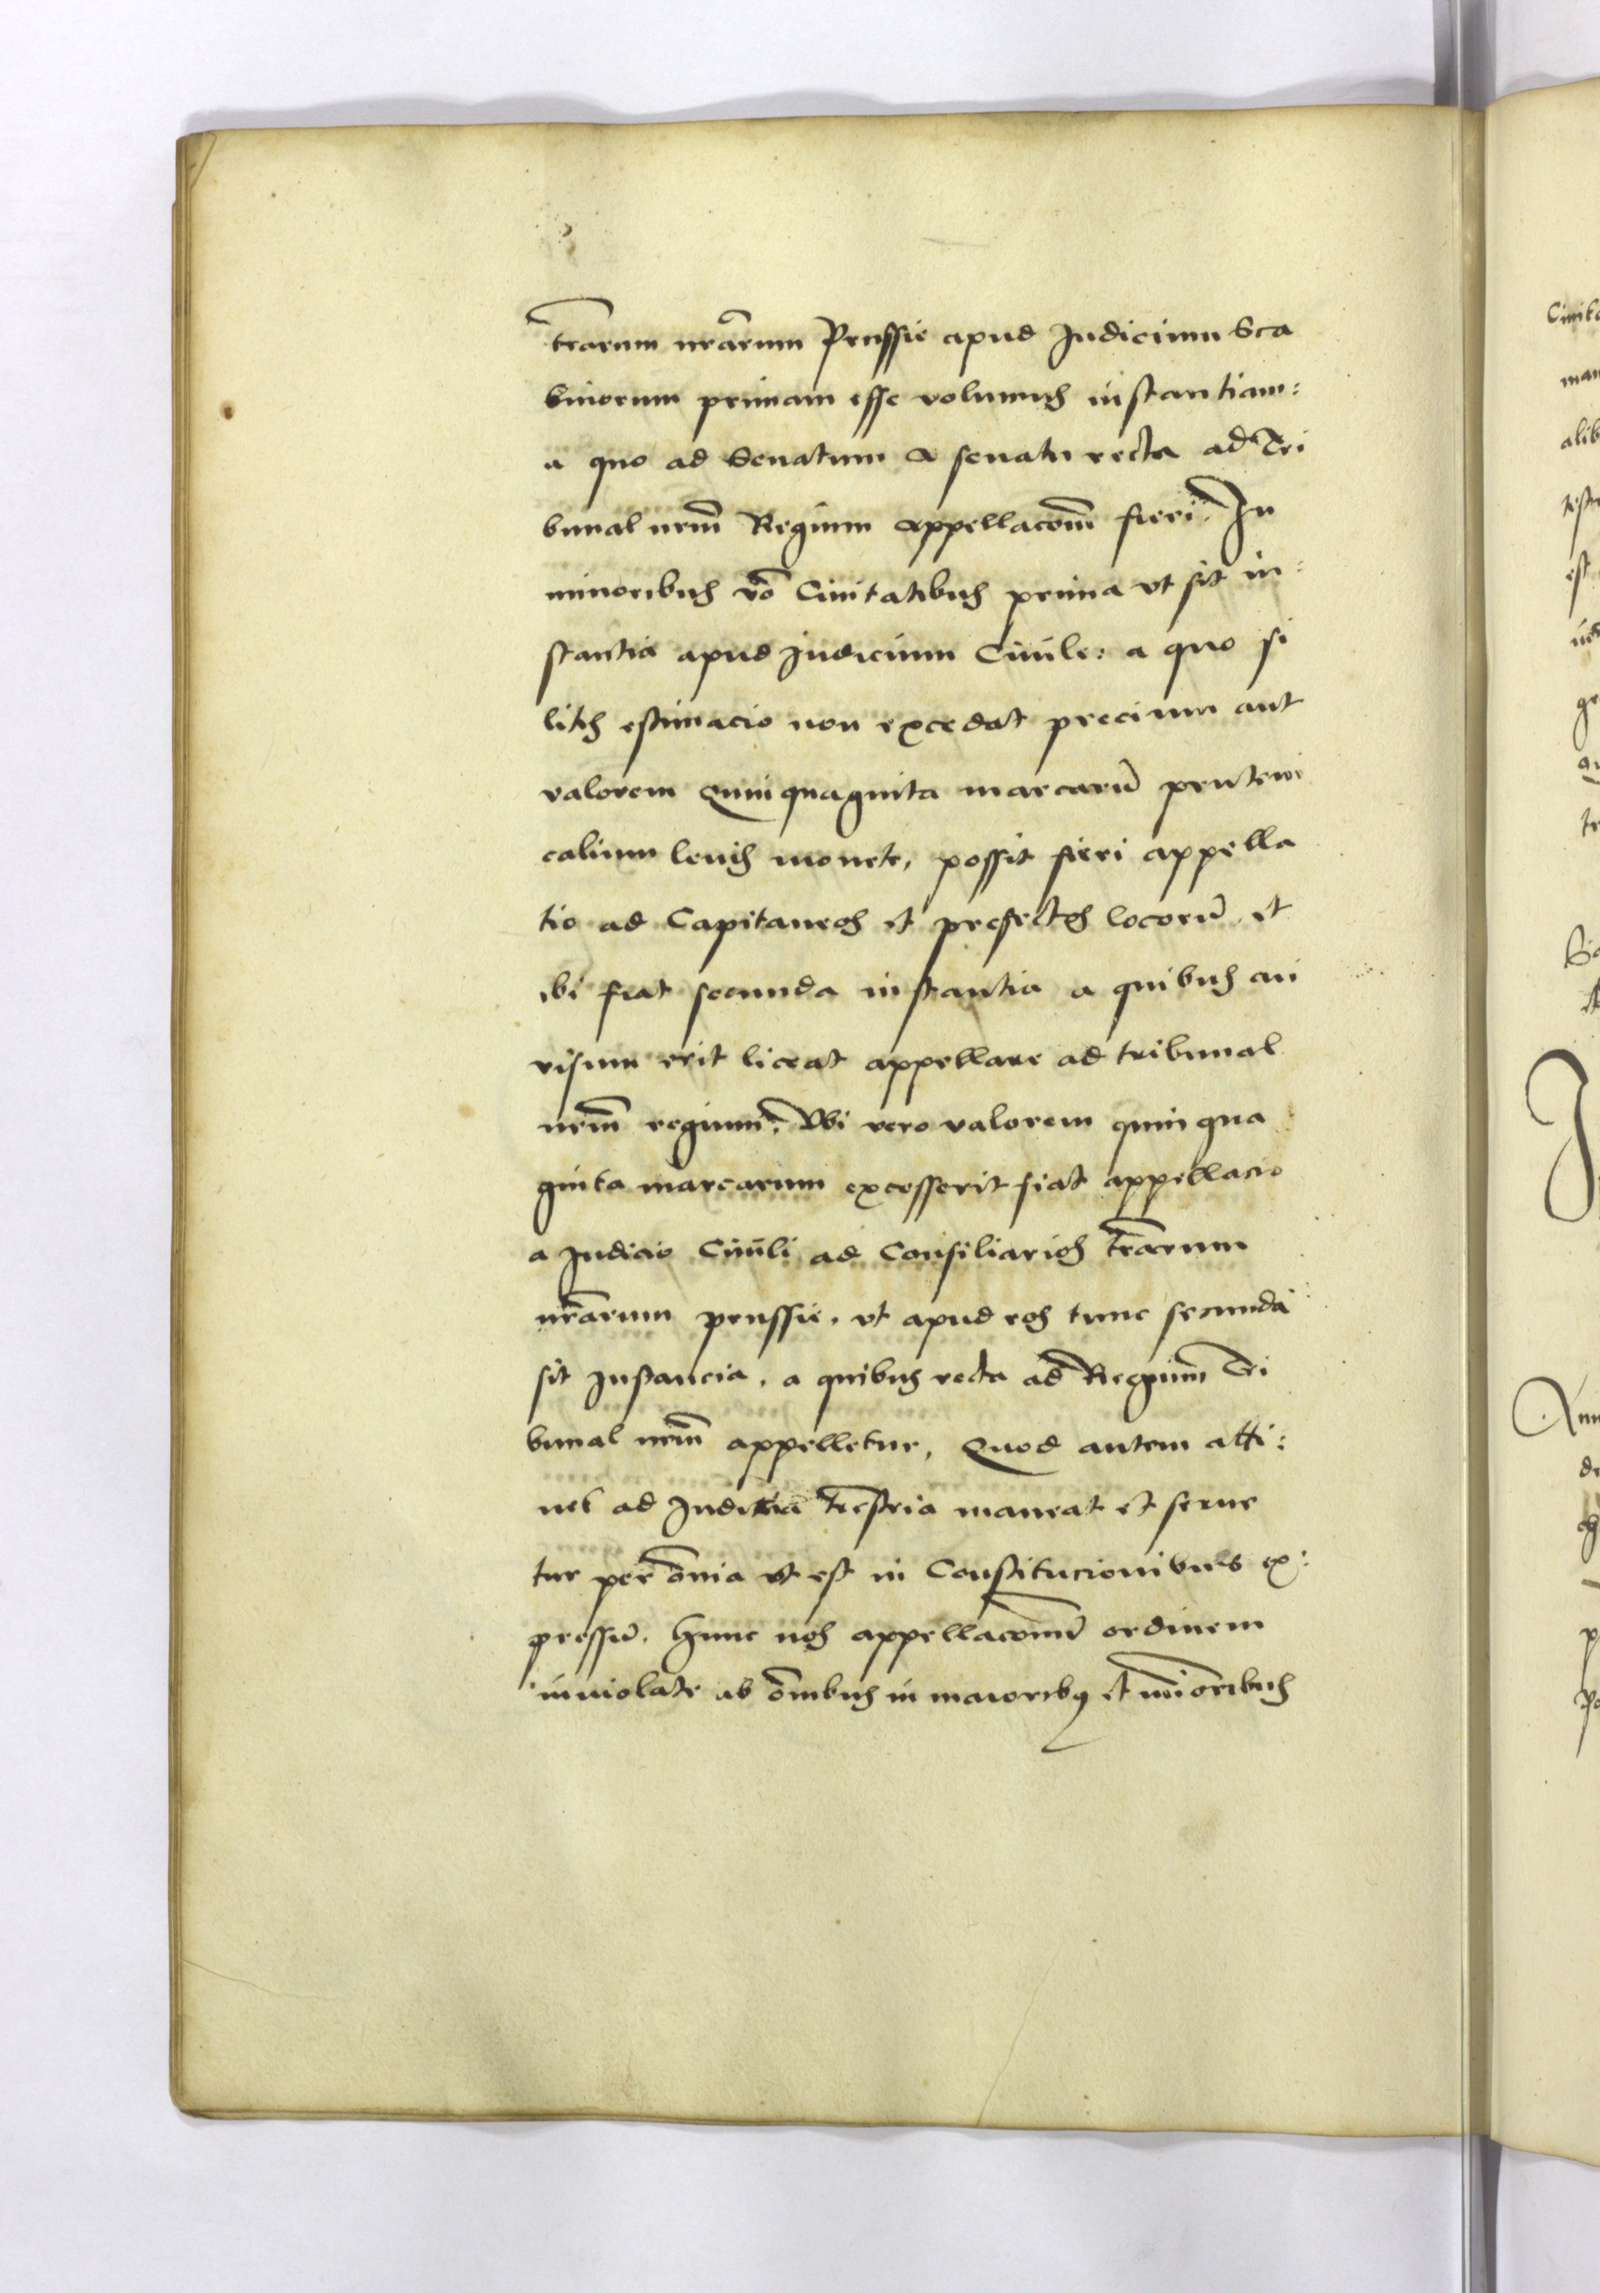 terarum nrarum Prussie apud Judicium Sca
binorum primam esse volumus instantiam:
a quo ad Senatum a senatu recta ad Tri
bunal nrm̄ Regium appellacōm̄ fieri. In
minoribus vō Ciuitatibus prima vt sit in:
stantia apud Judicium Ciuile: a quo si
litis estimacio non excedat precium aut
valorem Quinquaginta marcarū pruteni
calium leuis monete, possit fieri appella
tio ad Capitaneos et prefectos locorū et
ibi fiat secunda instantia a quibus cui
visum erit liceat appellare ad tribunal
nrm̄ regium. Vbi vero valorem quinqua
ginta marcarum excesserit fiat appellacio
a Judicio Ciuili ad Consiliarios trārum
nrārum prussie, vt apud eos tunc secunda
sit Instancia, a quibus recta ad Regium Tri
bunal nrm̄ appelletur, Quod autem atti:
net ad Judicia trēstria maneat et serue
tur per om̄ia vt est in Constitucionibus ex:
pressū. Hunc nos appellacōnū ordinem
inuiolate ab om̄ibus in maioribꝰ et minoribus
Ciuita
man
alib
est
ge
tr
J
de